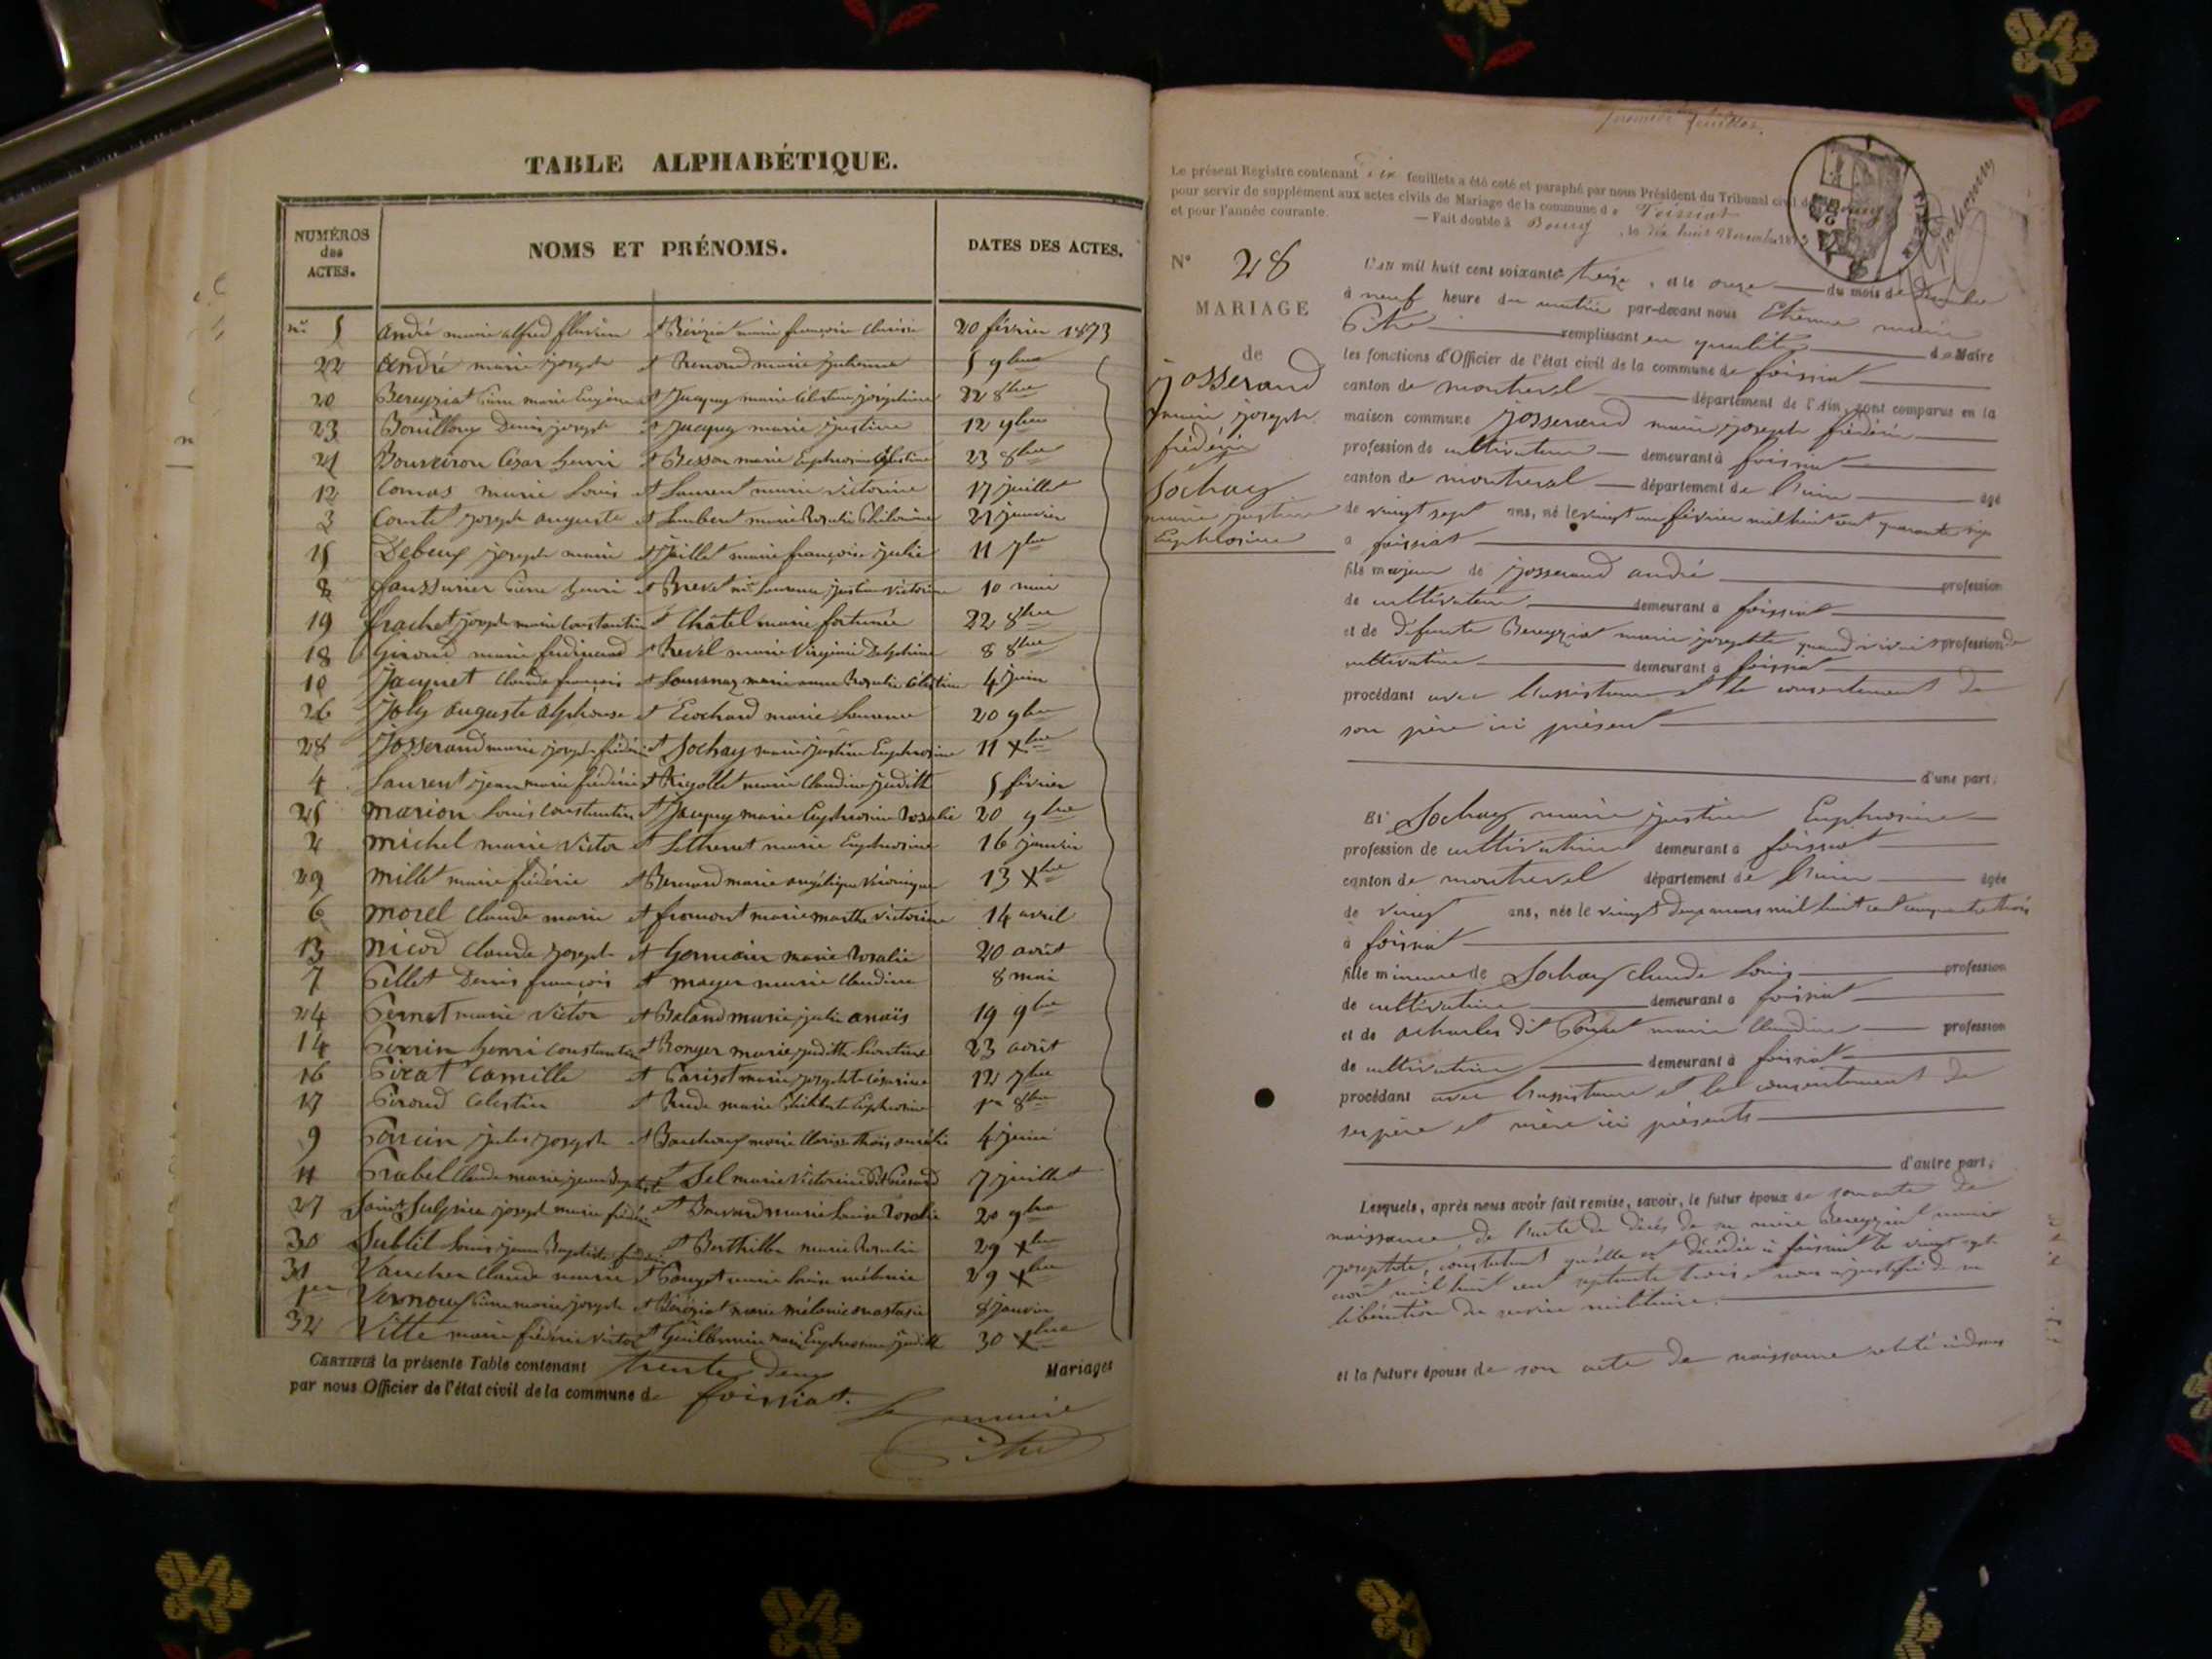 TABLE ALPHABÉTIQUE.
NUMÉROS des ACTES.
NOMS ET PRÉNOMS.
DATES DES ACTES.
5 andré marie alfred flavien et Béréziat marie françoise 20 février 1873
22 andré marie joseph et Renoud marie julienne 5 9bre
20 Bereyziat marie Eugène et Jacquy marie Célestine joséphine 22 8bre
23 Bouilloux Denis joseph et Jacquy marie justine 12 9bre
21 César henri et Besson marie Euphrosine Célestine 23 8bre
12 Comas marie Louis et Laurent marie victorine 17 juillet
3 Comte joseph auguste et Lambert marie Rosalie Philomène 21 janvier
15 Debeuf joseph marie et Jaillet marie françoise julie 11 7bre
8 henri et Brevet justine victorine 10 mai
19 frachet joseph marie Constantin et Chatel marie fortunée 22 8bre
18 Giroud marie ferdinand et Revel marie Virginie Delphine 8 8bre
10 Jacquet Claude françois et marie anne Rosalie Célestine 4 juin
26 Joly auguste alphonse et Ecochard marie Laurence 20 9bre
28 Josserand marie joseph frédéric et Sochay marie justine Euphrosine 11 Xbre
4 Laurent jean marie frédéric et Rigollet marie Claudine judith 5 février
25 marion Louis Constantin et Jacquy marie Euphrosine Rosalie 20 9bre
2 michel marie victor et Sethenet marie Euphrosine 16 janvier
29 millet marie frédéric et Bernard marie angélique Véronique 13 Xbre
6 morel Claude marie et fromont marie marthe victorine 14 avril
13 nicod Claude joseph et Germain marie Rosalie 20 août
7 Pellet Denis françois et mayer marie Claudine 8 mai
24 Pernet marie victor et Baland marie julie anaïs 19 9bre
14 Perrin henri Constantin et Ronger marie judith 23 août
16 Pirat Camille et Parisot marie josephte Césarine 12 7bre
17 Piroud Célestin et Rude marie Philiberte Euphrosine 1er 8bre
9 Poncin jules joseph et marie Clarisse 4 juin
11 Prabel Claude marie jean Baptiste et Sel marie Victorine dit 7 juillet
27 Saint Sulpice joseph marie frédéric et Bouvard marie Louise Rosalie 20 9bre
30 Subtil Louis jean Baptiste frédéric et Berthillon marie Rosalie 29 Xbre
31 Vaucher Claude marie et marie Louise mélanie 29 Xbre
1er Vernoux marie joseph et Béréziat marie mélanie anastasie 8 janvier
32 Vitte marie frédéric victor et Guillermin marie Euphrosine judith 30 Xbre
CERTIFIÉ la présente Table contenant trente deux Mariages
par nous Officier de l'état civil de la commune de foissiat.
Le maire
Pitre
Le présent Registre contenant dix feuillets a été coté et paraphé par nous Président du Tribunal civil de Bourg
pour servir de supplément aux actes civils de Mariage de la commune de Foissiat
et pour l'année courante. — Fait double à Bourg, le dix huit novembre 1873
N° 28
MARIAGE
de
josserand
marie joseph
frédéric
Sochay
marie justine
Euphrosine
L'AN mil huit cent soixante treize, et le onze du mois de décembre
à neuf heure du matin par-devant nous Etienne marie
Pitre remplissant en qualité de Maire
les fonctions d'Officier de l'état civil de la commune de foissiat
canton de montrevel département de l'Ain, sont comparus en la
maison commune josserand marie joseph frédéric
profession de cultivateur demeurant à foissiat
canton de montrevel département de l'ain âgé
de vingt sept ans, né le vingt un février mil huit cent quarante six
à foissiat
fils majeur de josserand andré profession
de cultivateur demeurant à foissiat
et de défunte Bereyziat marie josephte quand vivait profession de
cultivatrice demeurant à foissiat
procédant avec l'assistance et le consentement de
son père ici présent
d'une part;
Et Sochay marie justine Euphrosine
profession de cultivatrice demeurant à foissiat
canton de montrevel département de l'ain âgée
de vingt ans, née le vingt deux mars mil huit cent cinquante trois
à foissiat
fille mineure de Sochay claude Louis profession
de cultivateur demeurant à foissiat
et de dit marie Claudine profession
de cultivatrice demeurant à foissiat
procédant avec l'assistance et le consentement de
ses père et mère ici présents
d'autre part;
Lesquels, après nous avoir fait remise, savoir, le futur époux de son acte de
naissance, de l'acte de décès de sa mère Bereyziat marie
josephte, constatant qu'elle est décédée à foissiat le vingt sept
août mil huit cent septante trois et nous a justifié de sa
libération du service militaire.
et la future épouse de son acte de naissance relaté ci dessus